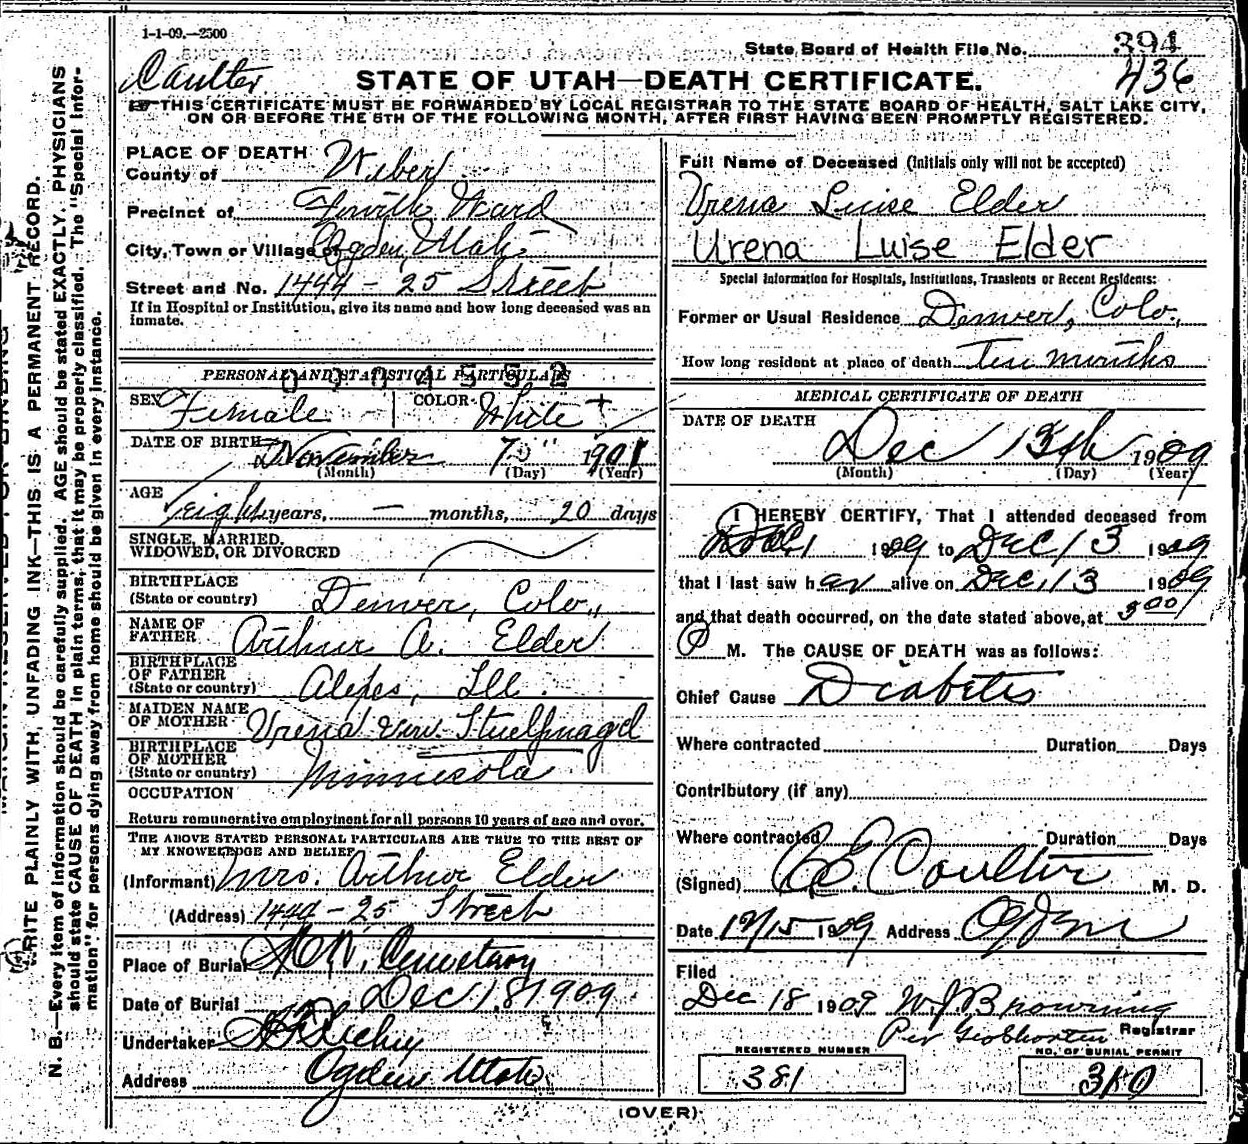 1-1-09.—2500
State Board of Health File No. 394
Coulter
STATE OF UTAH—DEATH CERTIFICATE.
436
THIS CERTIFICATE MUST BE FORWARDED BY LOCAL REGISTRAR TO THE STATE BOARD OF HEALTH, SALT LAKE CITY,
ON OR BEFORE THE 5TH OF THE FOLLOWING MONTH, AFTER FIRST HAVING BEEN PROMPTLY REGISTERED.
WRITE PLAINLY WITH UNFADING INK—THIS IS A PERMANENT RECORD.
N. B.—Every item of information should be carefully supplied. AGE should be stated EXACTLY. PHYSICIANS
should state CAUSE OF DEATH in plain terms, that it may be properly classified. The "Special Infor-
mation" for persons dying away from home should be given in every instance.
PLACE OF DEATH
County of Weber
Precinct of Fourth Ward
City, Town or Village of Ogden, Utah
Street and No. 1444 - 25 Street
If in Hospital or Institution, give its name and how long deceased was an
inmate.
PERSONAL AND STATISTICAL PARTICULARS
0904552
SEX Female COLOR White
DATE OF BIRTH November 1901
(Month) (Day) (Year)
AGE eight years, — months, 20 days
SINGLE, MARRIED.
WIDOWED, OR DIVORCED
BIRTHPLACE
(State or country) Denver, Colo.,
NAME OF
FATHER Arthur A. Elder
BIRTHPLACE
OF FATHER
(State or country) Ill.
MAIDEN NAME
OF MOTHER Urena von Stuelpnagel
BIRTHPLACE
OF MOTHER
(State or country) Minnesota
OCCUPATION
Return remunerative employment for all persons 10 years of age and over.
THE ABOVE STATED PERSONAL PARTICULARS ARE TRUE TO THE BEST OF
MY KNOWLEDGE AND BELIEF
(Informant) Mrs. Arthur Elder
(Address) 1444 - 25 Street
Place of Burial Cemetary
Date of Burial Dec 18 1909.
Undertaker
Address Ogden Utah
Full Name of Deceased (Initials only will not be accepted)
Urena Luise Elder
Urena Luise Elder
Special Information for Hospitals, Institutions, Transients or Recent Residents:
Former or Usual Residence Denver, Colo.,
How long resident at place of death Ten months
MEDICAL CERTIFICATE OF DEATH
DATE OF DEATH
Dec 1909
(Month) (Day) (Year)
I HEREBY CERTIFY, That I attended deceased from
1909 to Dec 13 1909
that I last saw her alive on Dec, 13 1909
and that death occurred, on the date stated above, at 300
P M. The CAUSE OF DEATH was as follows:
Chief Cause Diabetes
Where contracted Duration Days
Contributory (if any)
Where contracted Duration Days
(Signed) C.E. Coulter M. D.
Date 12/15 1909 Address Ogden
Filed
Dec 18 1909 W. J. Browning
Registrar
REGISTERED NUMBER
381
NO. OF BURIAL PERMIT
(OVER)